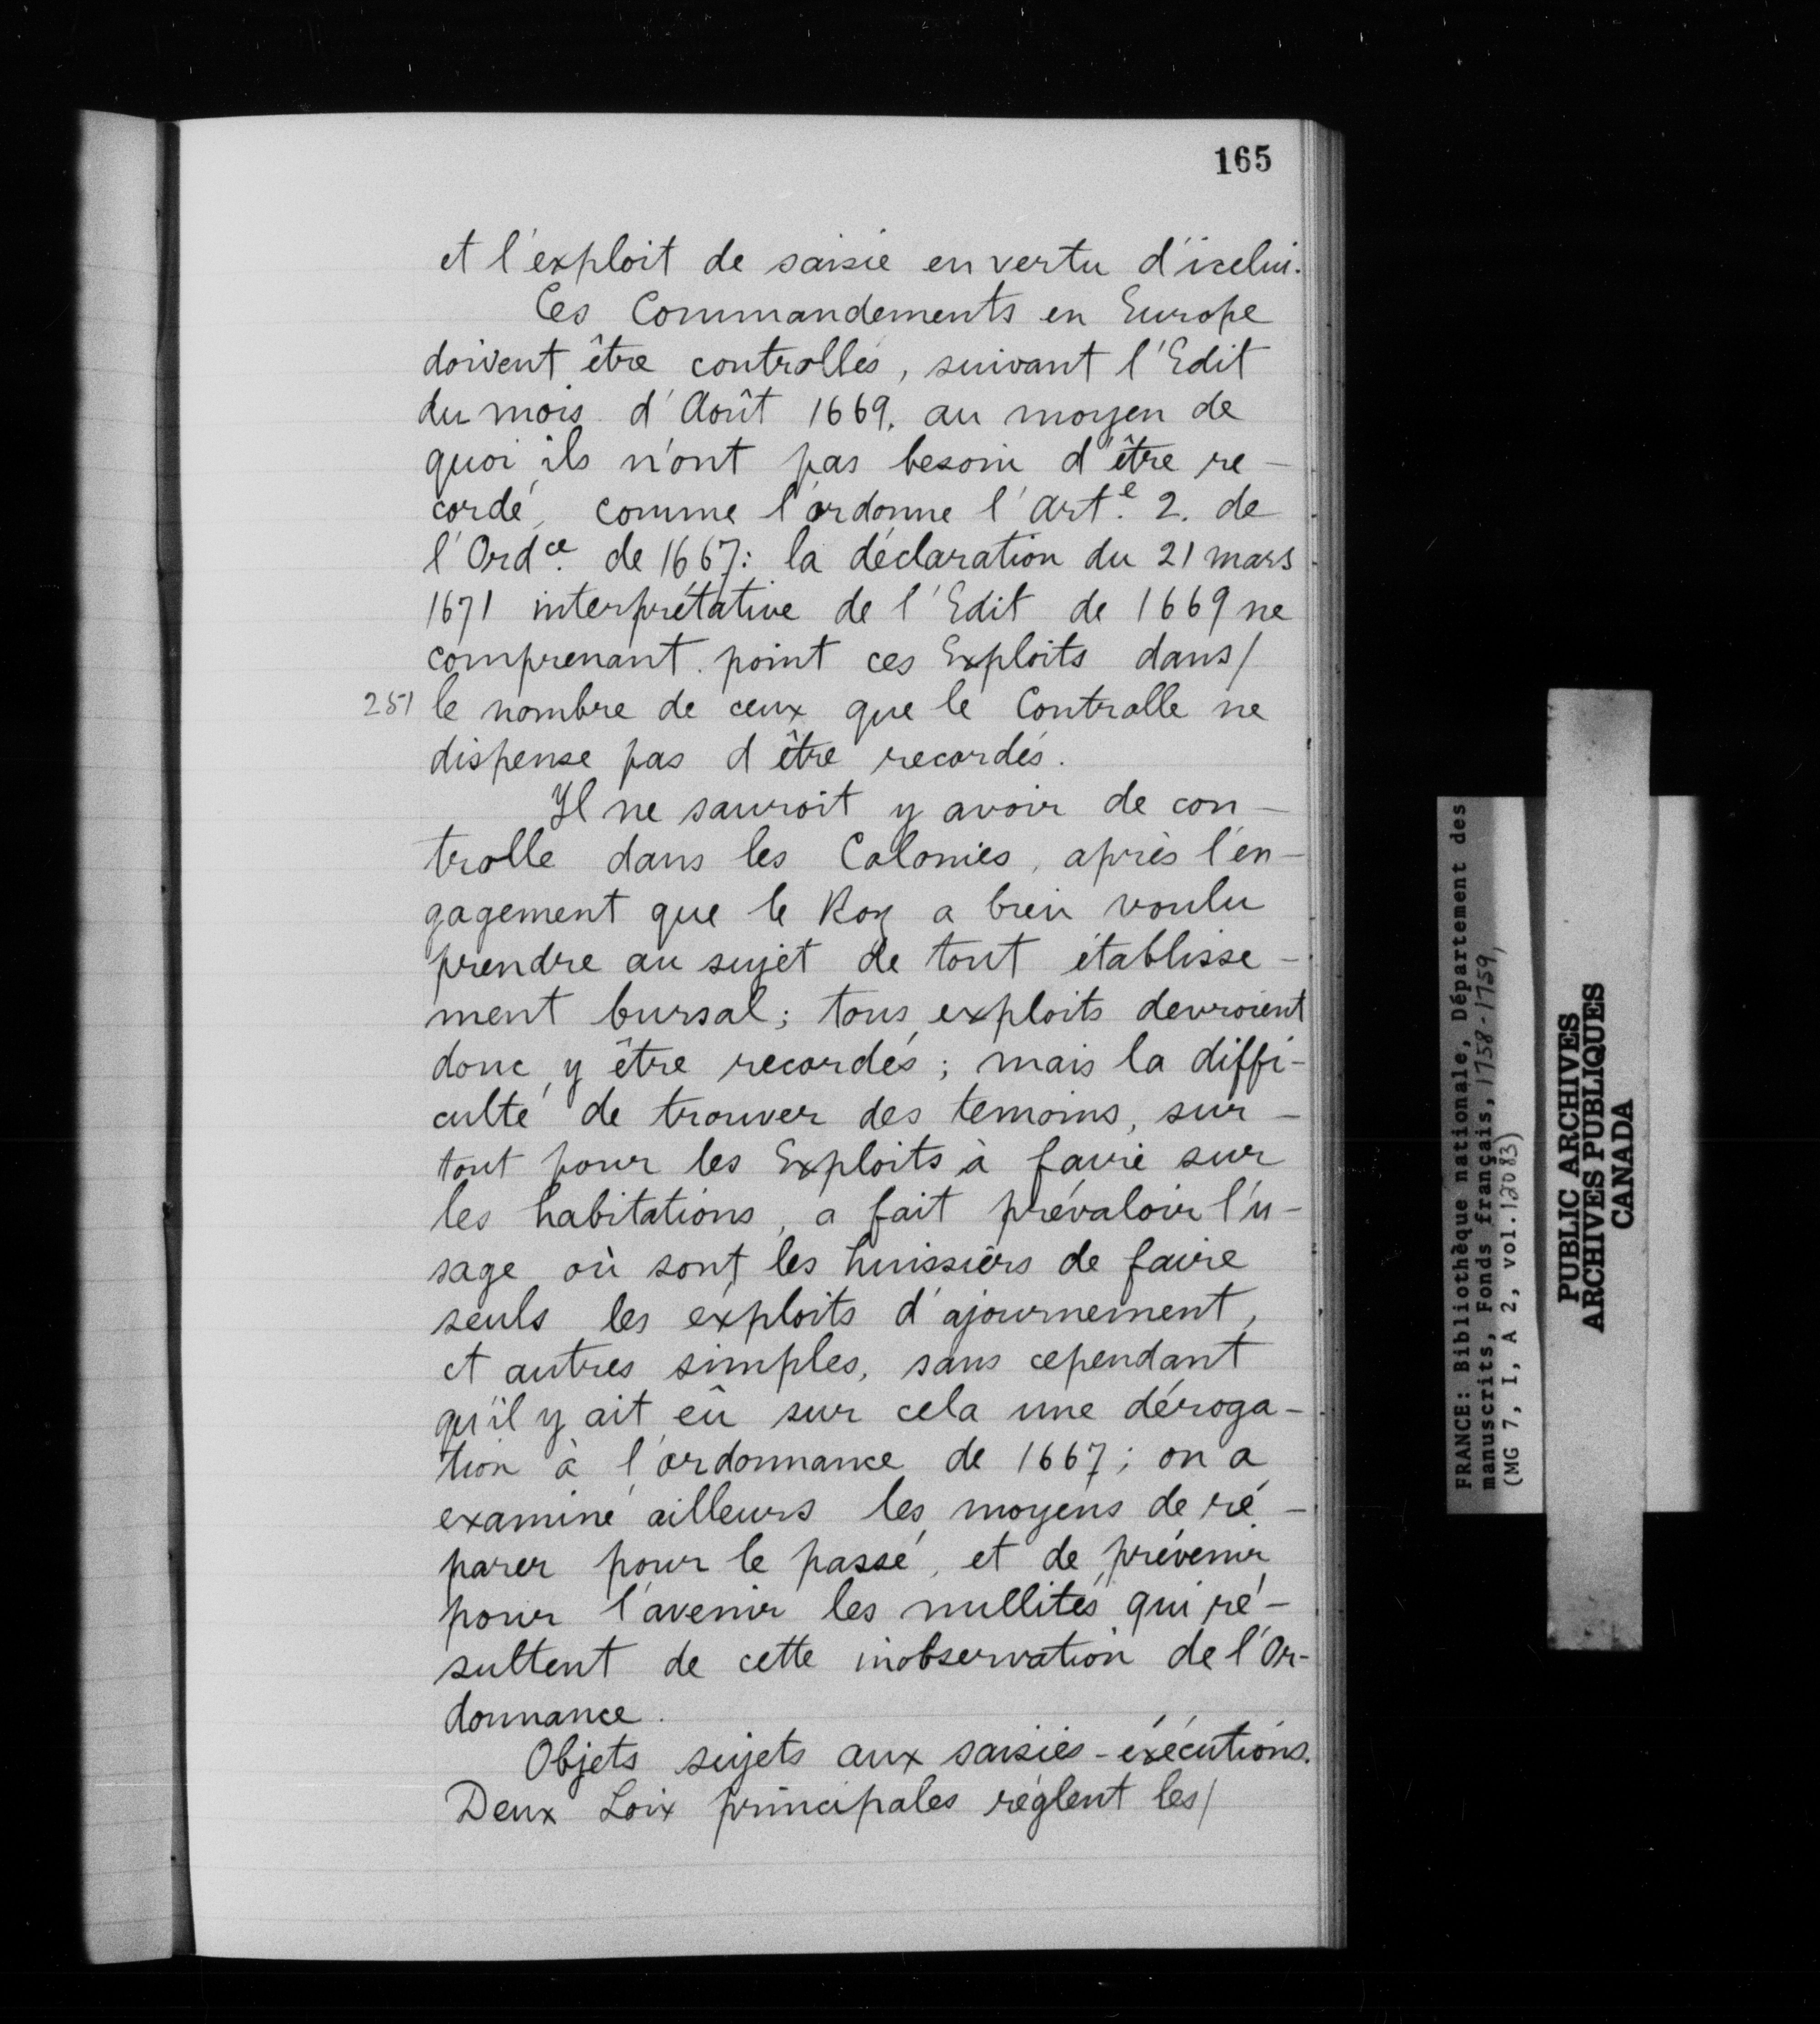 165
et l'exploit de saisie en vertu d'icelui.
Ces Commandements en Europe
doivent être controllés, suivant l'Edit
du mois d'Août 1669. au moyen de
quoi ils n'ont pas besoin d'être re-
cordé, comme l'ordonne l'Art.e 2. de
l'Ord.ce de 1667: la déclaration du 21 mars
1671 interprétative de l'Edit de 1669 ne
comprenant point ces Exploits dans/
251 le nombre de ceux que le Controlle ne
dispense pas d'être recordés.
Il ne sauroit y avoir de con-
trolle dans les Colonies, après l'en-
gagement que le Roy a bien voulu
prendre au sujet de tout établisse-
ment bursal; tous exploits devroient
donc y être recordés; mais la diffi-
culté de trouver des temoins, sur-
tout pour les Exploits à faire sur
les habitations, a fait prévaloir l'u-
sage où sont les huissiers de faire
seuls les exploits d'ajournement,
et autres simples, sans cependant
qu'il y ait eû sur cela une déroga-
tion à l'ordonnance de 1667; on a
examiné ailleurs les moyens de ré-
parer pour le passé, et de prévenir
pour l'avenir les nullités qui ré-
sultent de cette inobservation de l'Or-
donnance.
Objets sujets aux saisies-éxécutions.
Deux Loix principales réglent les/
FRANCE: Bibliothèque nationale, Département des
manuscrits, Fonds français, 1758-1759,
(MG 7, I, A 2, vol. 12083)
PUBLIC ARCHIVES
ARCHIVES PUBLIQUES
CANADA